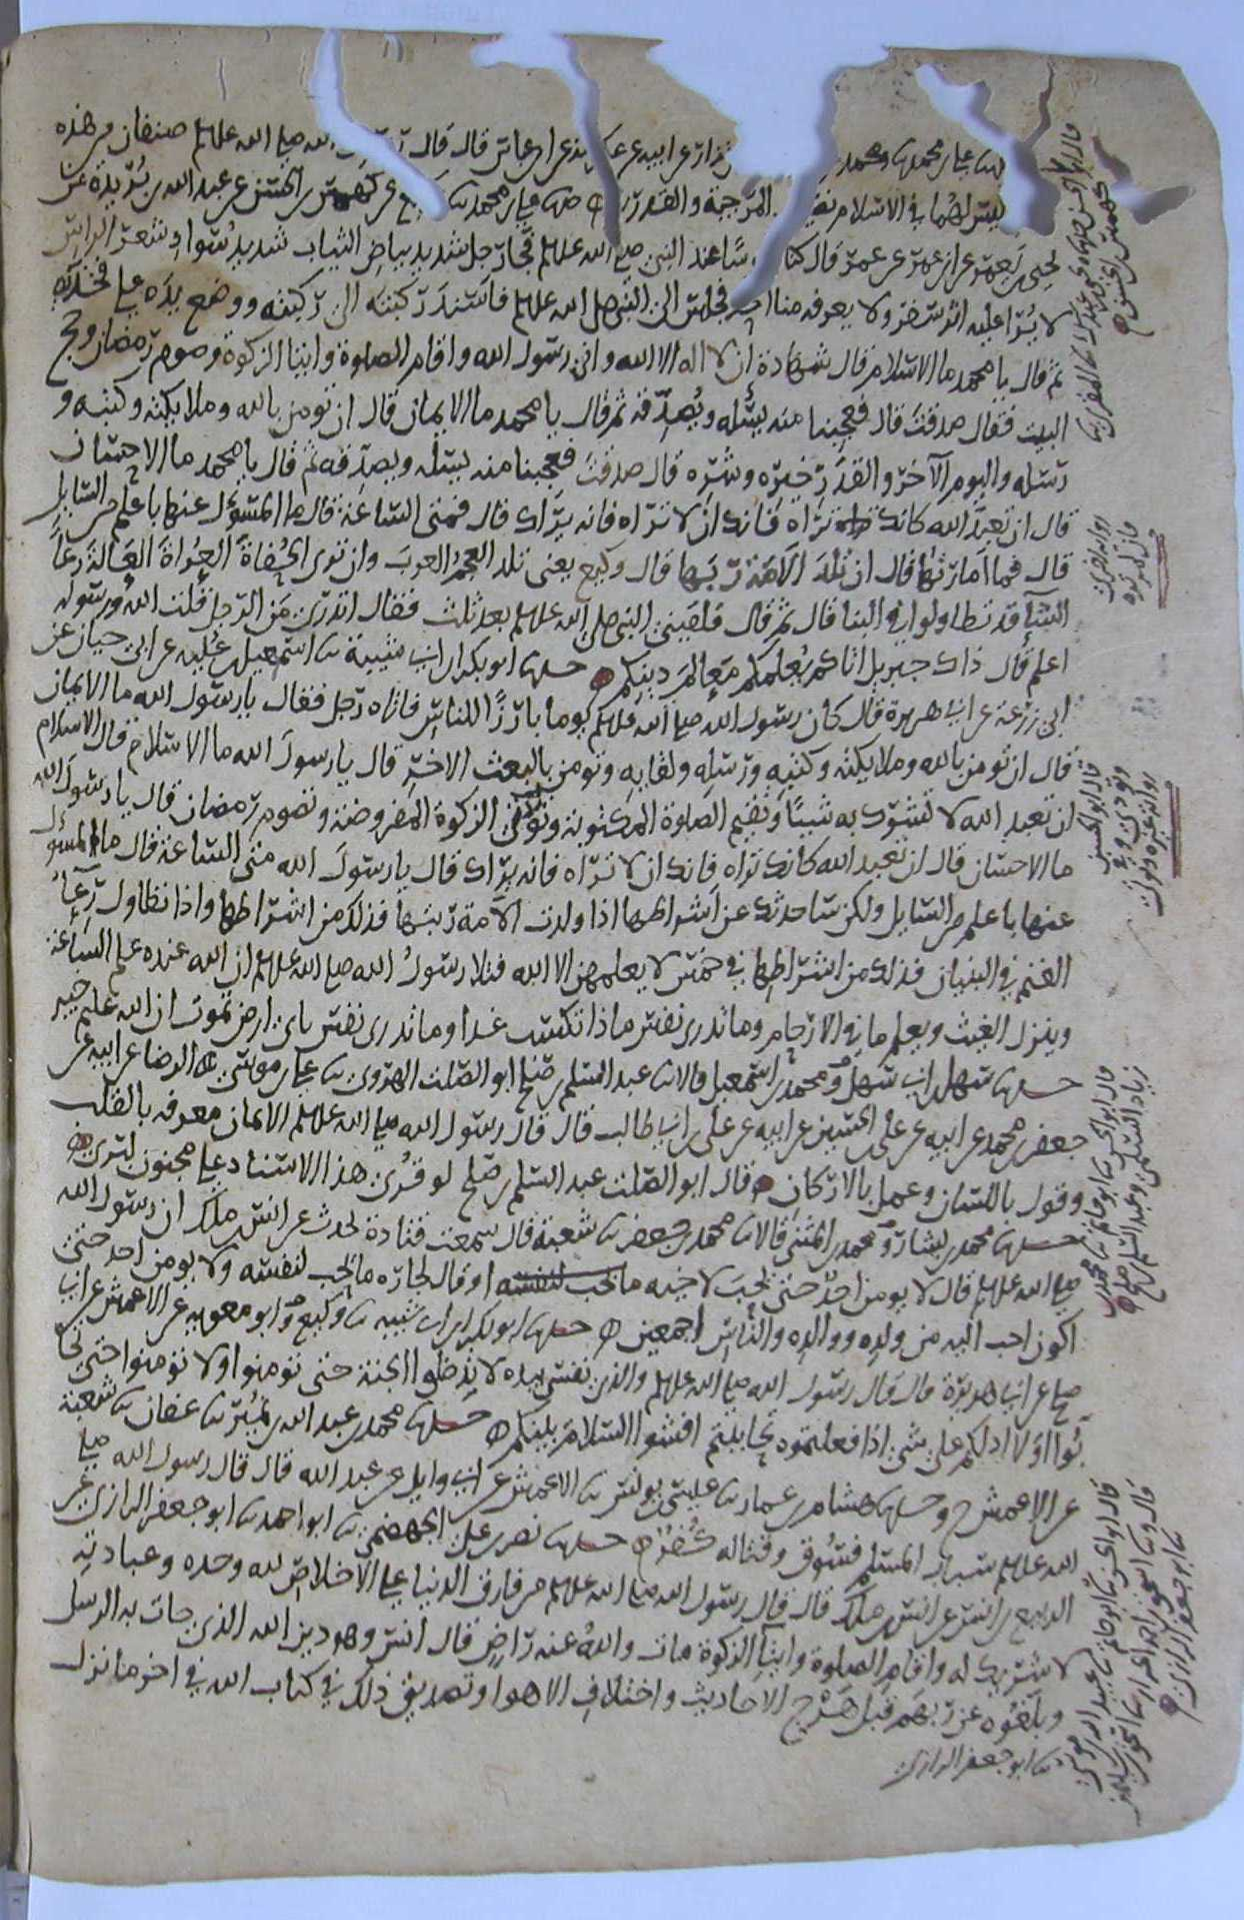 نزار عن ابيه عن عكرمة عن ابن عباس قال قال رسول الله صلى الله عليه وسلم صنفان من هذه
ليس لهما في الاسلام نصيب المرجية والقدرية حدثنا علي بن محمد ثنا وكيع عن كهمس بن الحسن عن عبد الله بن بريدة عن
يحيى بن يعمر عن ابن عمر عن عمر قال كنا جلوسا عند النبي صلى الله عليه وسلم فجا رجل شديد بياض الثياب شديد سواد شعر الراس
لا يرا عليه اثر سفر ولا يعرفه منا احد فجلس الى النبي صلى الله عليه وسلم فاسند ركبته الى ركبته ووضع يده على فخذيه
ثم قال يا محمد ما الاسلام قال شهادة ان لا اله الا الله واني رسول الله واقام الصلوة وايتا الزكوة وصوم رمضان وحج
البيت فقال صدقت قال فعجبنا منه يسئله ويصدقه ثم قال يا محمد ما الايمان قال ان تومن بالله وملايكته وكتبه و
رسله واليوم الآخر والقدر خيره وشره قال صدقت فعجبنا منه يسئله ويصدقه ثم قال يا محمد ما الاحسان
قال ان تعبد الله كانك تراه فانك ان لا تراه فانه يراك قال فمتى الساعة قال ما المسؤل عنها باعلم من السايل
قال فما امارتها قال ان تلد الامة ربتها قال وكيع يعني تلد العجم العرب وان ترى الحفاة العراة العالة رعا
الشا قد تطاولوا في البنا قال ثم قال فلقيني النبي صلى الله عليه وسلم بعد ثلث فقال اتدري من الرجل قلت الله ورسوله
اعلم قال ذاك جبريل اتاكم يعلمكم معالم دينكم حدثنا ابو بكر بن ابي شيبة ثنا اسمعيل بن علية عن ابي حيان عن
ابي زرعة عن ابي هريرة قال كان رسول الله صلى الله عليه وسلم يوما بارزا للناس فاتاه رجل فقال يا رسول الله ما الايمان
قال ان تومن بالله وملايكته وكتبه ورسله ولقايه وتومن بالبعث الاخر قال يا رسول الله ما الاسلام قال الاسلام
ان تعبد الله لا تشرك به شيئا وتقيم الصلوة المكتوبة وتؤتي الزكوة المفروضة وتصوم رمضان قال يا رسول الله
ما الاحسان قال ان تعبد الله كانك تراه فانك ان لا تراه فانه يراك قال يا رسول الله متى الساعة قال ما المسؤل
عنها باعلم من السايل ولكن ساحدثك عن اشراطها اذا ولدت الامة ربتها فذلك من اشراطها واذا تطاول رعا
الغنم في البنيان فذلك من اشراطها في خمس لا يعلمهن الا الله فتلا رسول الله صلى الله عليه وسلم ان الله عنده علم الساعة
وينزل الغيث ويعلم ما في الارحام وما تدري نفس ماذا تكسب غدا وما تدري نفس باي ارض تموت ان الله عليم خبير
حدثنا سهل بن ابي سهل ومحمد بن اسمعيل قالا ثنا عبد السلم بن صلح ابو الصلت الهروي ثنا علي بن موسى الرضا عن ابيه عن
جعفر بن محمد عن ابيه عن علي بن الحسين عن ابيه عن علي بن ابي طالب قال قال رسول الله صلى الله عليه وسلم الايمان معرفه بالقلب
وقول باللسان وعمل بالاركان قال ابو الصلت عبد السلم بن صلح لو قرئ هذا الاسناد على مجنون لبرئ
حدثنا محمد بن بشار ومحمد بن المثنى قالا ثنا محمد بن جعفر ثنا شعبة قال سمعت قتادة يحدث عن انس بن ملك ان رسول الله
صلى الله عليه وسلم قال لا يومن احد حتى يحب لاخيه ما يحب لنفسه او قال لجاره ما يحب لنفسه ولا يومن احد حتى
اكون احب اليه من ولده ووالده والناس اجمعين حدثنا ابو بكر بن ابي شيبه ثنا وكيع وابو معويه عن الاعمش عن ابي
صلح عن ابي هريرة قال قال رسول الله صلى الله عليه وسلم والذي نفسي بيده لا تدخلوا الجنة حتى تومنوا ولا تومنوا حتى تحا
بوا اولا ادلكم على شي اذا فعلتموه تحاببتم افشوا السلام بينكم حدثنا محمد بن عبد الله بن نمير ثنا عفان ثنا شعبة
عن الاعمش ح وحدثنا هشام بن عمار ثنا عيسى بن يونس ثنا الاعمش عن ابي وايل عن عبد الله قال قال رسول الله صلى
الله عليه وسلم سباب المسلم فسوق وقتاله كفر حدثنا نصر بن علي الجهضمي ثنا ابو احمد ثنا ابو جعفر الرازي عن
الربيع بن انس عن انس بن ملك قال قال رسول الله صلى الله عليه وسلم من فارق الدنيا على الاخلاص لله وحده وعبادته
لا شريك له واقام الصلوة وايتا الزكوة مات والله عنه راض قال انس وهو دين الله الذي جات به الرسل
وبلغوه عن ربهم قبل هرج الاحاديث واختلاف الاهوا وتصديق ذلك في كتاب الله في اخر ما نزل
ثنا ابو جعفر الرازي